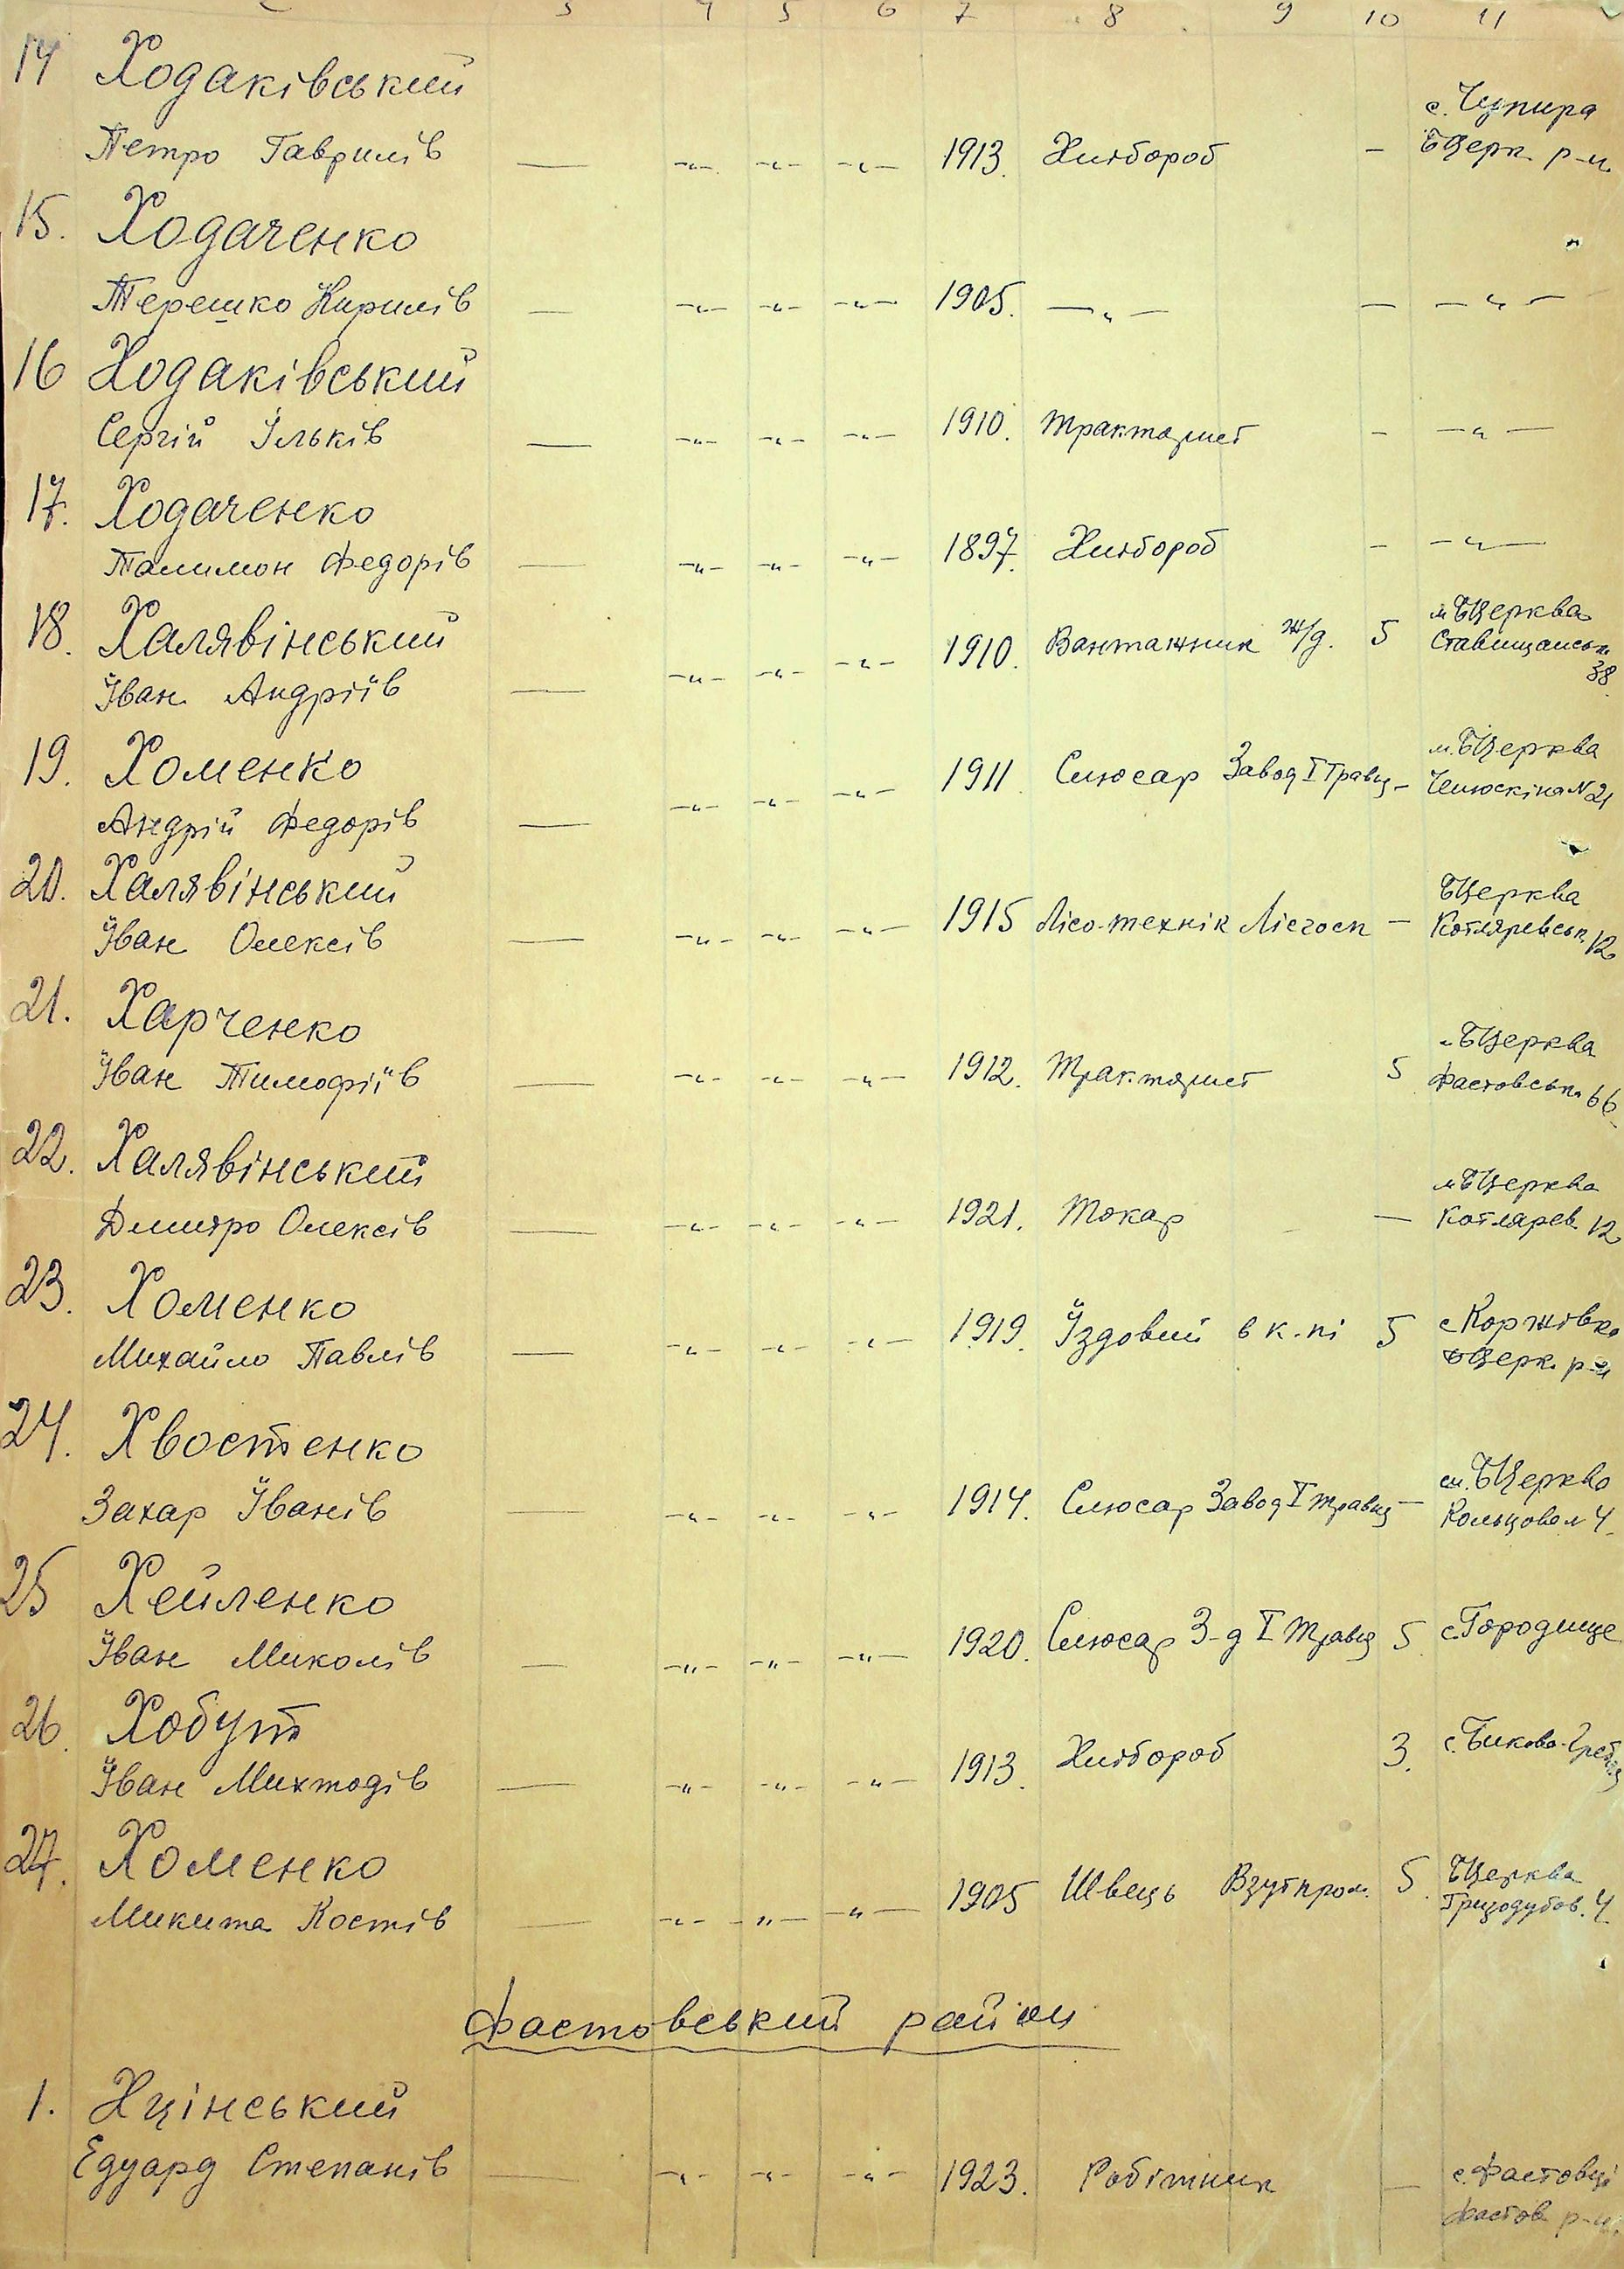 3 4 5 6 7 8 9 10 11
14 Ходаківський
Петро Гаврилів — -"- -"- -"- 1913. Хлібороб - с. Чупира Б Церк. р-н.
15. Ходаченко
Терешко Кирилів — -"- -"- -"- 1905. -"- — -"-
16 Ходаківський
Сергій Ільків — -"- -"- -"- 1910. Тракторист - -"-
17. Ходаченко
Палимон Федорів — -"- -"- -"- 1897. Хлібороб - -"-
18. Халявінський
Іван Андріїв — -"- -"- -"- 1910. Вантажник ж/д. 5 м. БЦерква Ставищанськ 38.
19. Хоменко
Андрій Федорів — -"- -"- -"- 1911 Слюсар Завод І Травц - м. БЦерква Челюскіна N 21
20. Халявінський
Іван Олексів — -"- -"- -"- 1915 Лісо-технік Лісгосп - БЦерква Котляревськ. 12
21. Харченко
Іван Тимофіїв — -"- -"- -"- 1912. Тракторист 5 м. БЦерква Фастовськ. 66
22. Халявінський
Дмитро Олексів — -"- -"- -"- 1921. Токар — м БЦерква Котлярев. 12
23. Хоменко
Михайло Павлів — -"- -"- -"- 1919. Їздовий в к.-пі 5 с. Коржівка БЦерк. р-н
24. Хвостенко
Захар Іванів — -"- -"- -"- 1914. Слюсар Завод І травц — м. БЦерква 4
25 Хейленко
Іван Миколів — -"- -"- -"- 1920. Слюсар З-д І Травц 5 с. Городище
26. Хобут
Іван Михтодів — -"- -"- -"- 1913. Хлібороб 3. с. Биково-Гребля
27. Хоменко
Микита Костів — -"- -"- -"- 1905 Швець Взутпром. 5 БЦерква Гризодубов. 4.
Фастовський район
1. Хцінський
Едуард Степанів — -"- -"- -"- 1923. Робітник — с. Фастовці Фастов р-н.